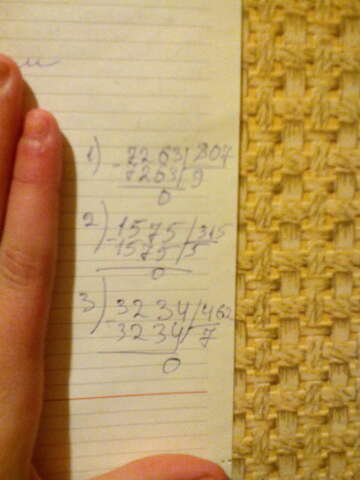 1) - 7263 / 807
7263 / 9
0
2) - 1575 / 315
1575 / 5
0
3) - 3234 / 462
3234 / 7
0